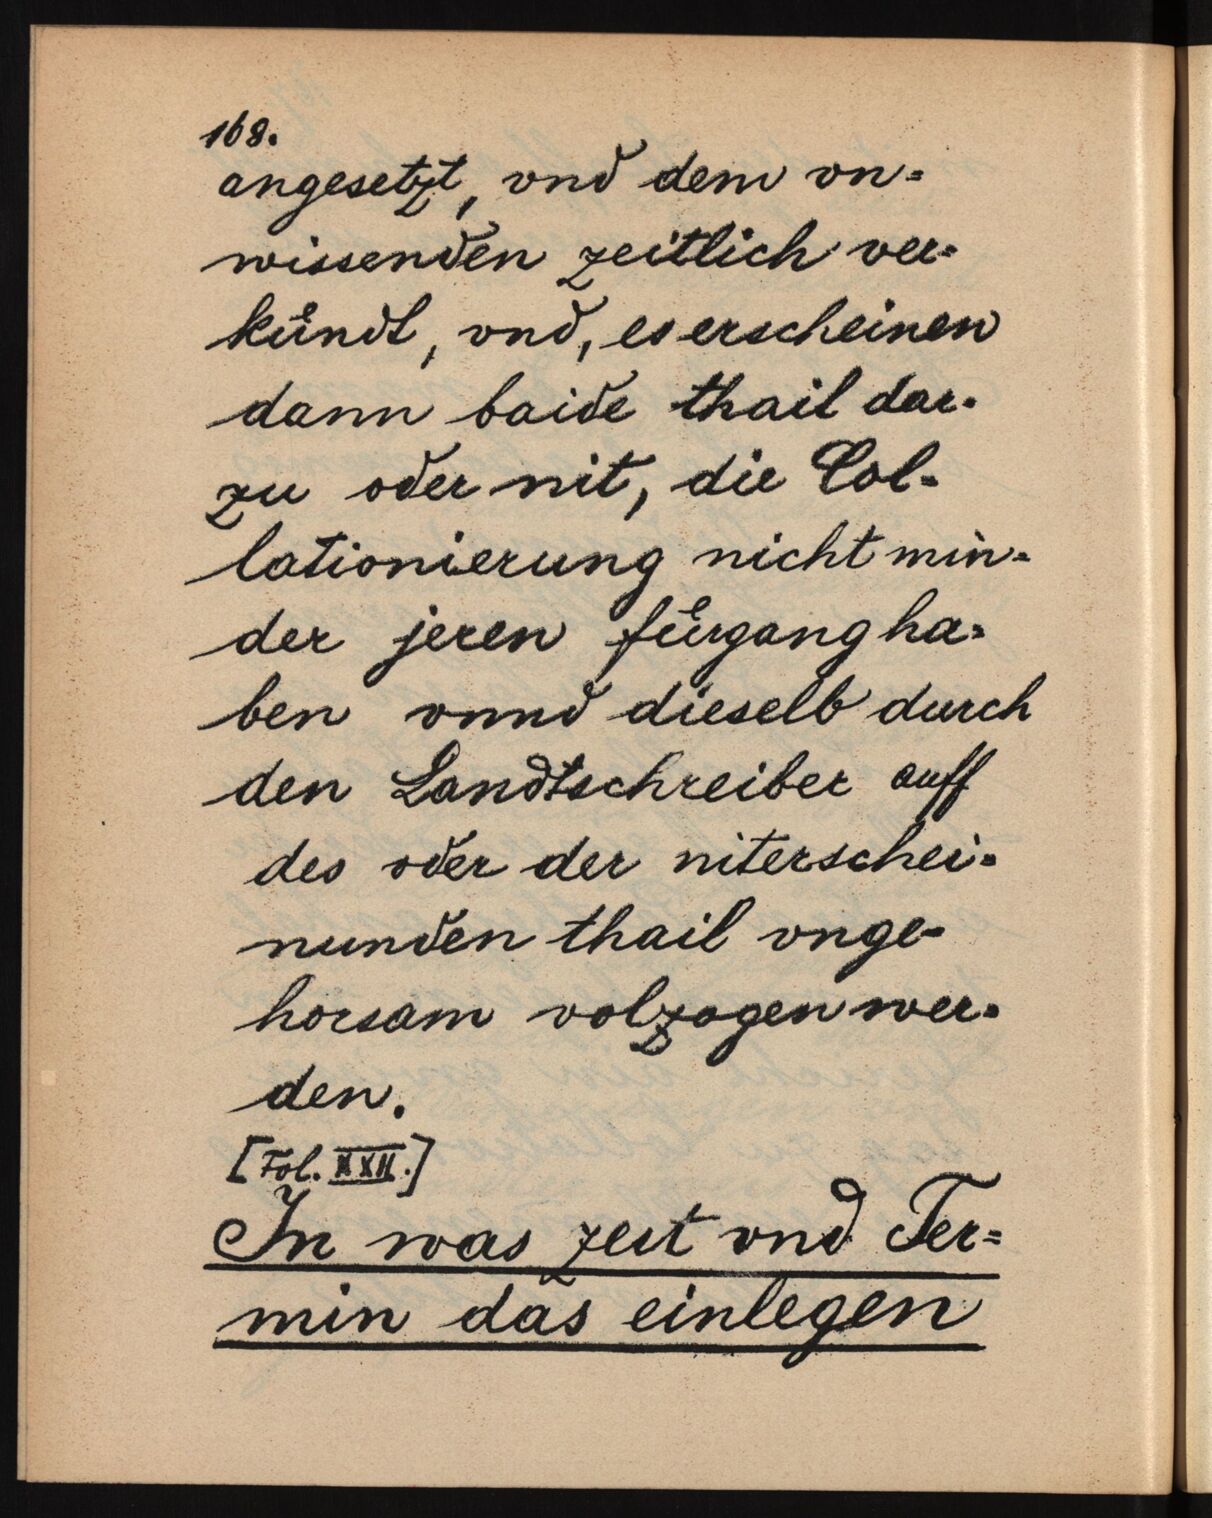 168.
angesetzt, vnd dem vn=
wissenden zeitlich ver=
kůndt, vnd, es erscheinen
dann baide thail dar=
zu oder nit, die Col=
lationierung nicht min=
der jeren fůrgang ha=
ben vnnd dieselb durch
den Landtschreiber auff
des oder der niterschei=
nunden thail vnge=
horsam volzogen wer=
den.
[Fol. XXII.]
In was zeit vnd Ter=
min das einlegen